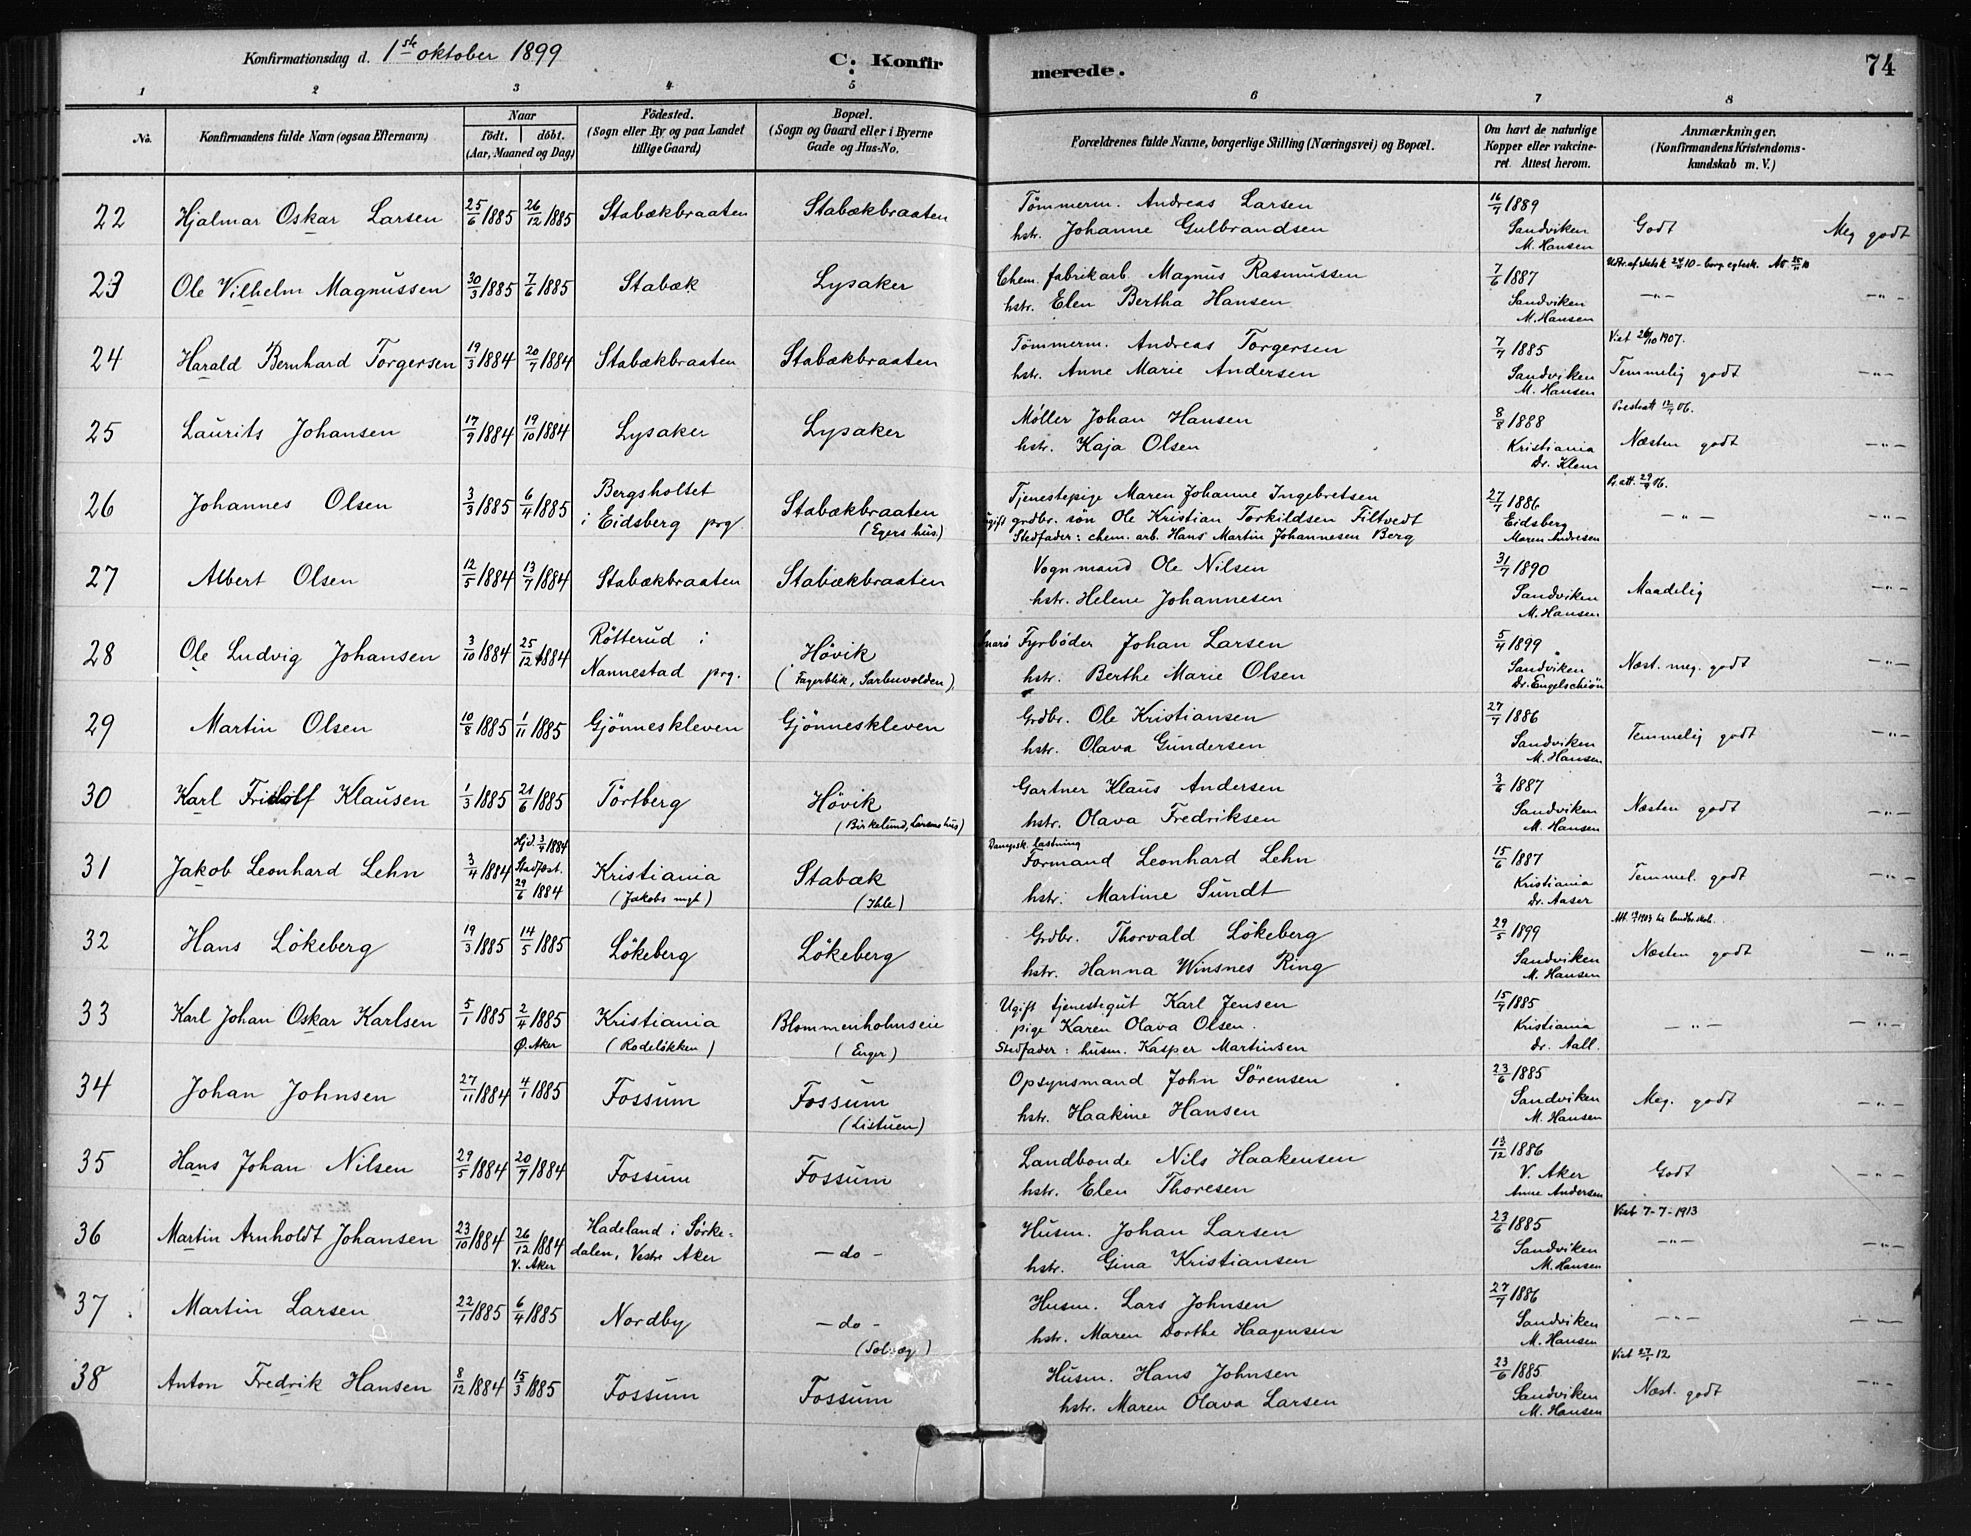 Konfirmationsdag d. 1ste oktober 1899
C: Konfirmerede.
74
1 2 3 4 5 6 7 8
No.
Konfirmandens fulde Navn (ogsaa Efternavn)
Naar
födt. döbt.
(Aar, Maaned og Dag)
Födested.
(Sogn eller By og paa Landet
tillige Gaard)
Bopæl.
(Sogn og Gaard eller i Byerne
Gade og Hus-No.
Forældrenes fulde Navne, borgerlige Stilling (Næringsvei) og Bopæl.
Om havt de naturlige
Kopper eller vakcine-
ret. Attest herom.
Anmærkninger.
(Konfirmandens Kristendoms-
kundskab m. V.)
22 Hjalmar Oskar Larsen 25/6 1885 26/12 1885 Stabækbraaten Stabækbraaten
Tömmerm. Andreas Larsen
hstr. Johanne Gulbrandsen
16/7 1889
Sandviken
M. Hansen
Godt Meg godt
23 Ole Vilhelm Magnussen 30/3 1885 7/6 1885 Stabæk Lysaker
Chem. fabrikarb. Magnus Rasmussen
hstr. Elen Bertha Hansen
7/6 1887
Sandviken
M. Hansen
—"— —"—
24 Harald Bernhard Torgersen 19/3 1884 20/7 1884 Stabækbraaten Stabækbraaten
Tömmerm. Andreas Torgersen
hstr. Anne Marie Andersen
7/7 1885
Sandviken
M. Hansen
Viet 26/10 1907.
Temmelig godt —"—
25 Laurits Johansen 17/9 1884 19/10 1884 Lysaker Lysaker
Møller Johan Hansen
hstr. Kaja Olsen
8/8 1888
Kristiania
Dr. Klem
Næsten godt —"—
26 Johannes Olsen 3/3 1885 6/4 1885
Bergsholtet
i Eidsberg prg.
Stabækbraaten
(Egers hus)
Tjenestepige Maren Johanne Ingebretsen
ugift grdbr. søn Ole Kristian Torkildsen Filtvedt
Stedfader: chem. arb. Hans Martin Johannesen Berg
27/7 1886
Eidsberg
Maren Andresen
—"— —"—
27 Albert Olsen 12/5 1884 13/7 1884 Stabækbraaten Stabækbraaten
Vognmand Ole Nilsen
hstr. Helene Johannesen
31/7 1890
Sandviken
M. Hansen
Maadelig —"—
28 Ole Ludvig Johansen 3/10 1884 25/12 1884
Rötterud i
Nannestad prg.
Hövik
(Fagerblik, Sarbuvolden)
Fyrböder Johan Larsen
hstr. Berthe Marie Olsen
5/4 1899
Sandviken
Dr. Engelschiön
Næst. meg. godt —"—
29 Martin Olsen 10/8 1885 1/11 1885 Gjönneskleven Gjönneskleven
Grdbr. Ole Kristiansen
hstr. Olava Gundersen
27/7 1886
Sandviken
M. Hansen
Temmelig godt —"—
30 Karl Fridolf Klausen 1/3 1885 21/6 1885 Törtberg Hövik
(Birkelund, Larsens hus)
Gartner Klaus Andersen
hstr. Olava Fredriksen
3/6 1887
Sandviken
M. Hansen
Næsten godt —"—
31 Jakob Leonhard Lehn 3/4 1884
Hjd. 3/4 1884
Stadfæst.
29/6 1884
Kristiania
(Jakobs mgh)
Stabæk
(Ihle)
Dampsk. lastning
Formand Leonhard Lehn
hstr. Martine Sundt
15/6 1887
Kristiania
Dr. Aaser
Temmel. godt —"—
32 Hans Lökeberg 19/3 1885 14/5 1885 Lökeberg Lökeberg
Grdbr. Thorvald Lökeberg
hstr. Hanna Winsnes Ring
29/5 1899
Sandviken
M. Hansen
Næsten godt —"—
33 Karl Johan Oskar Karlsen 5/1 1885 2/4 1885
Ø. Aker
Kristiania
(Rodelökken)
Blommenholmseie
(Enger)
Ugift tjenestegut Karl Jensen
pige Karen Olava Olsen.
Stedfader: husm. Kasper Martinsen
15/7 1885
Kristiania
Dr. Aall.
—"— —"—
34 Johan Johnsen 27/11 1884 4/1 1885 Fossum Fossum
(Listuen)
Opsynsmand John Sörensen
hstr. Haakine Hansen
23/6 1885
Sandviken
M. Hansen
Meg. godt —"—
35 Hans Johan Nilsen 29/5 1884 20/7 1884 Fossum Fossum
Landbonde Nils Haakensen
hstr. Elen Thoresen
13/12 1886
V. Aker
Anne Andersen
Godt —"—
36 Martin Arnholdt Johansen 23/10 1884 26/12 1884
V. Aker
Hadeland i Sörke=
dalen, Vestre Aker
— do —
Husm. Johan Larsen
hstr. Gina Kristiansen
23/6 1885
Sandviken
M. Hansen
Viet 7-7-1913
—"— —"—
37 Martin Larsen 22/1 1885 6/4 1885 Nordby — do —
(Solvæg)
Husm. Lars Johnsen
hstr. Maren Dorthe Haagensen
27/7 1886
Sandviken
M. Hansen
—"— —"—
38 Anton Fredrik Hansen 8/12 1884 15/3 1885 Fossum Fossum
Husm. Hans Johnsen
hstr. Maren Olava Larsen
23/6 1885
Sandviken
M. Hansen
Næst. godt —"—